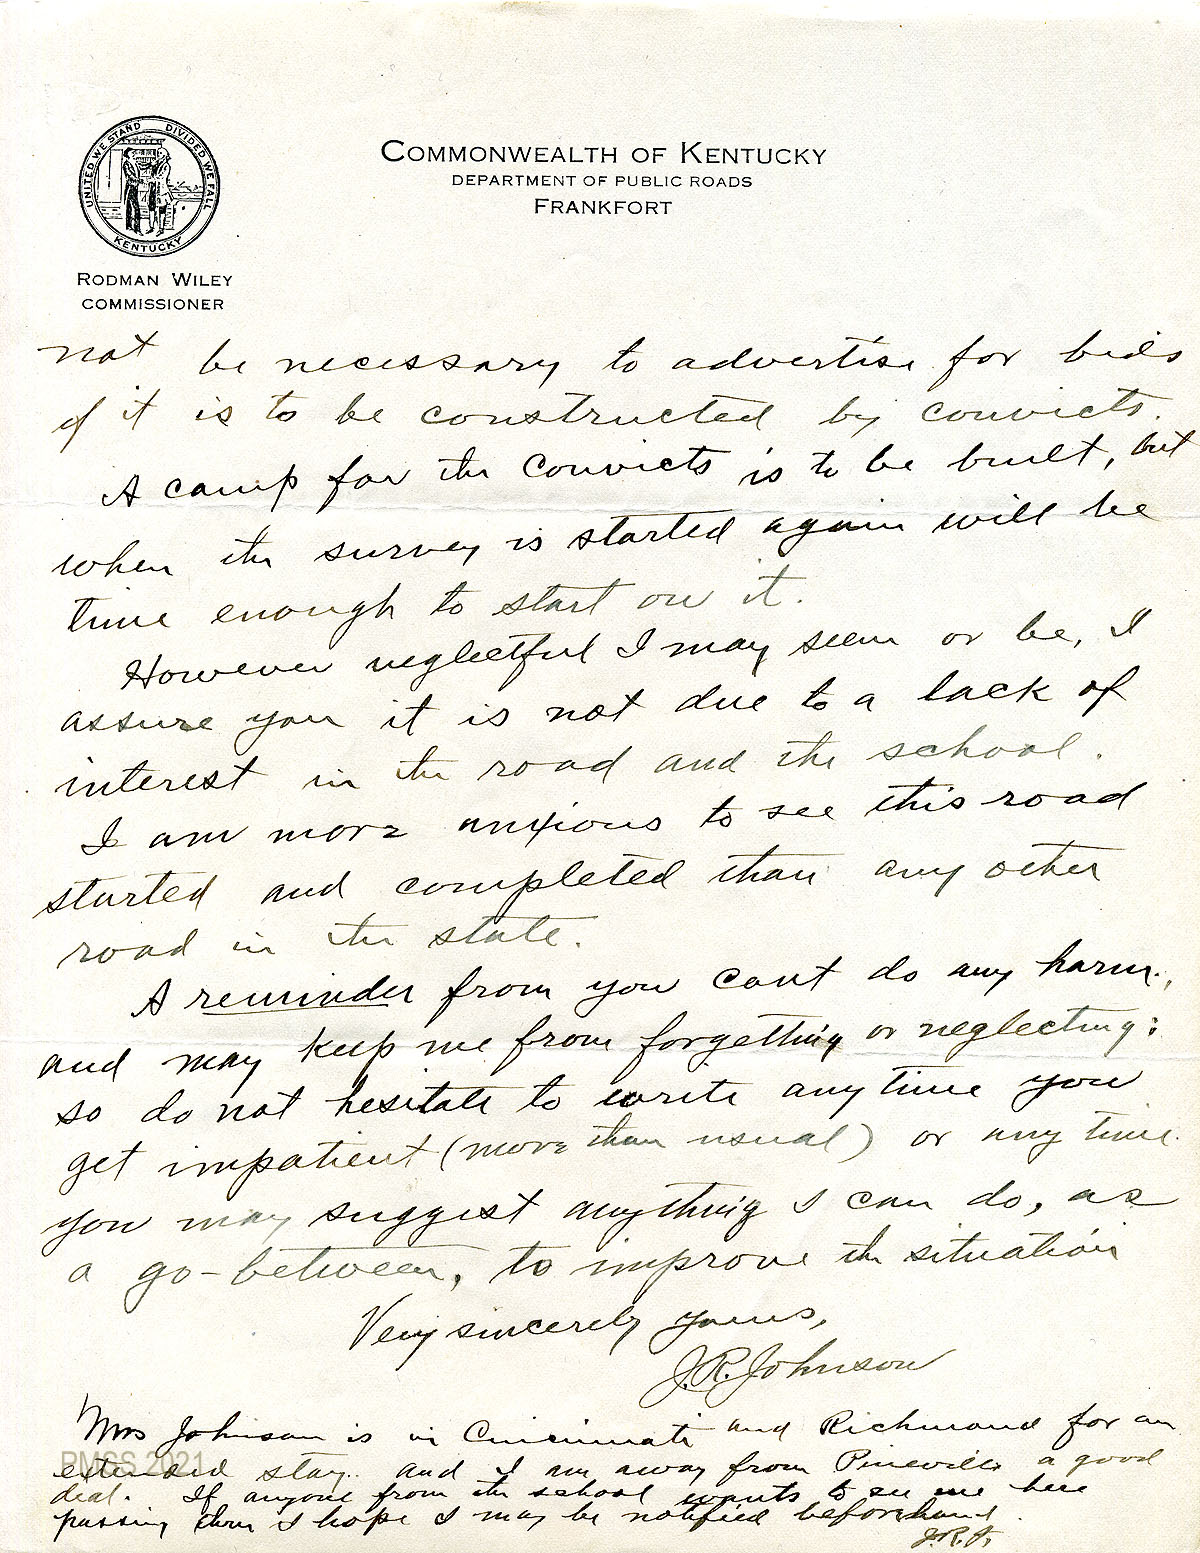 UNITED WE STAND DIVIDED WE FALL
KENTUCKY
RODMAN WILEY
COMMISSIONER
COMMONWEALTH OF KENTUCKY
DEPARTMENT OF PUBLIC ROADS
FRANKFORT
not be necessary to advertise for bids
if it is to be constructed by convicts.
A camp for the convicts is to be built, but
when the survey is started again will be
time enough to start on it.
However neglectful I may seem or be, I
assure you it is not due to a lack of
interest in the road and the school.
I am more anxious to see this road
started and completed than any other
road in the state.
A reminder from you cant do any harm,
and may keep me from forgetting or neglecting;
so do not hesitate to write any time you
get impatient (more than usual) or any time
you may suggest anything I can do, as
a go-between, to improve the situation
Very sincerely yours,
J.R. Johnson
Mrs Johnson is in Cincinnati and Richmond for an
extended stay. and I am away from Pineville a good
deal. If anyone from the school wants to see me here
passing thru I hope I may be notified beforehand.
J.R.J.
PMSS 2021